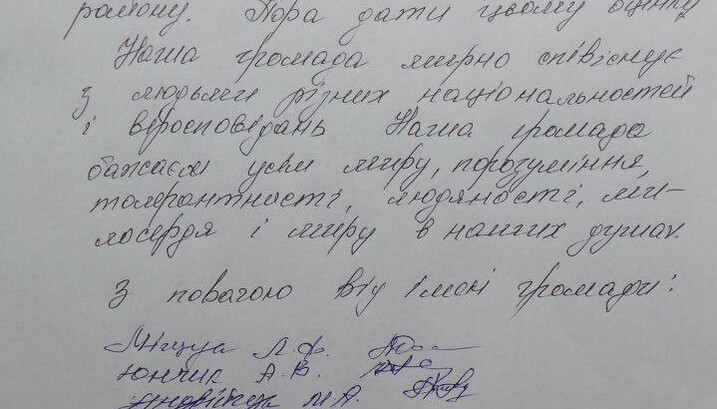 району. Пора дати цьому оцінку
Наша громада мирно співіснує
з людьми різних національностей
і віросповідань Наша громада
бажаєм усім миру, порозуміння,
толерантності, людяності, ми-
лосердя і миру в наших душах.
З повагою від імені громади:
Л.Ф.
Юнчик А.В.
М.А.